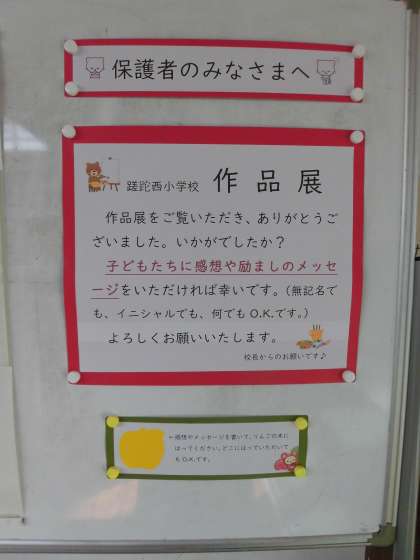 保護者のみなさまへ
蹉跎西小学校 作品展
作品展をご覧いただき、ありがとうご
ざいました。いかがでしたか？
子どもたちに感想や励ましのメッセ
ージをいただければ幸いです。（無記名で
も、イニシャルでも、何でもO.K.です。）
よろしくお願いいたします。
校長からのお願いです♪
←感想やメッセージを書いて、りんごの木に
はってください。どこにはっていただいて
もO.K.です。